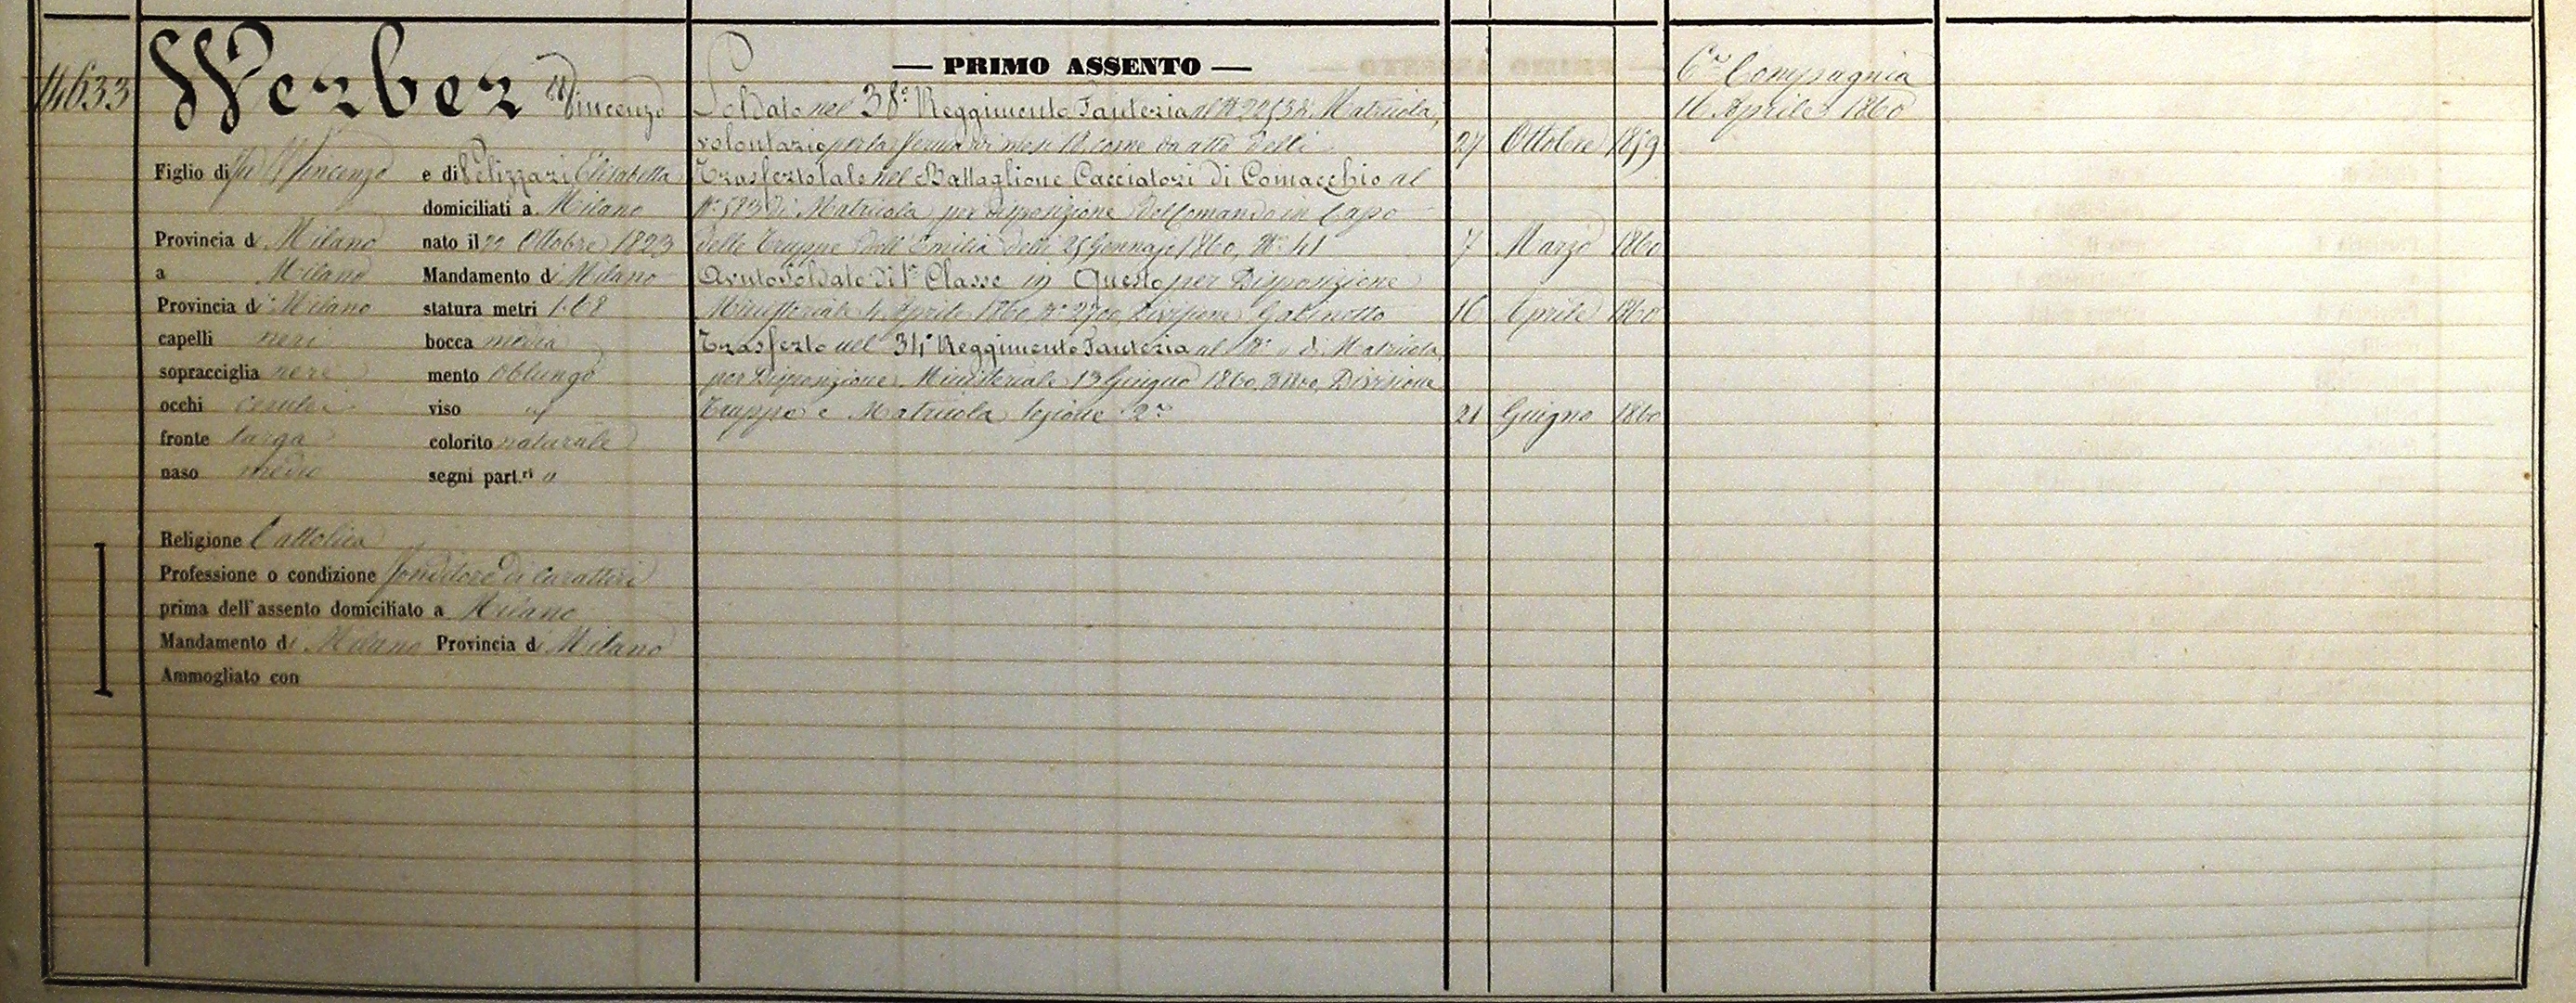 14633
Werber Vincenzo
Figlio di fu Vincenzo e di Pelizzari Elisabetta
domiciliati a Milano
Provincia di Milano nato il 22 Ottobre 1823
a Milano Mandamento di Milano
Provincia di Milano statura metri 1.68
capelli neri bocca media
sopracciglia nere mento oblungo
occhi cerulei viso "
fronte larga colorito naturale
naso medio segni part.ri "
Religione Cattolica
Professione o condizione fonditore di caratteri
prima dell'assento domiciliato a Milano
Mandamento di Milano Provincia di Milano
Ammogliato con
— PRIMO ASSENTO —
Soldato nel 38° Reggimento Fanteria al N° di Matricola,
volontario per la ferma di mesi 18, come da atto delli 27 Ottobre 1859
Trasferto tale nel Battaglione Cacciatori di Comacchio al
N° 583 di Matricola per disposizione del Comando in Capo
delle Truppe dell'Emilia delli 25 Gennajo 1860, N° 41 7 Marzo 1860
Avuto Soldato di 1a Classe in Questo per Disposizione
Ministeriale 4 Aprile 1860, N° 2700, Divisione Gabinetto 16 Aprile 1860
Trasferto nel 34° Reggimento Fanteria al N° " di Matricola,
per Disposizione Ministeriale 13 Giugno 1860, Divisione
Truppe e Matricola Sezione 2a 21 Giugno 1860
6a Compagnia
16 Aprile 1860